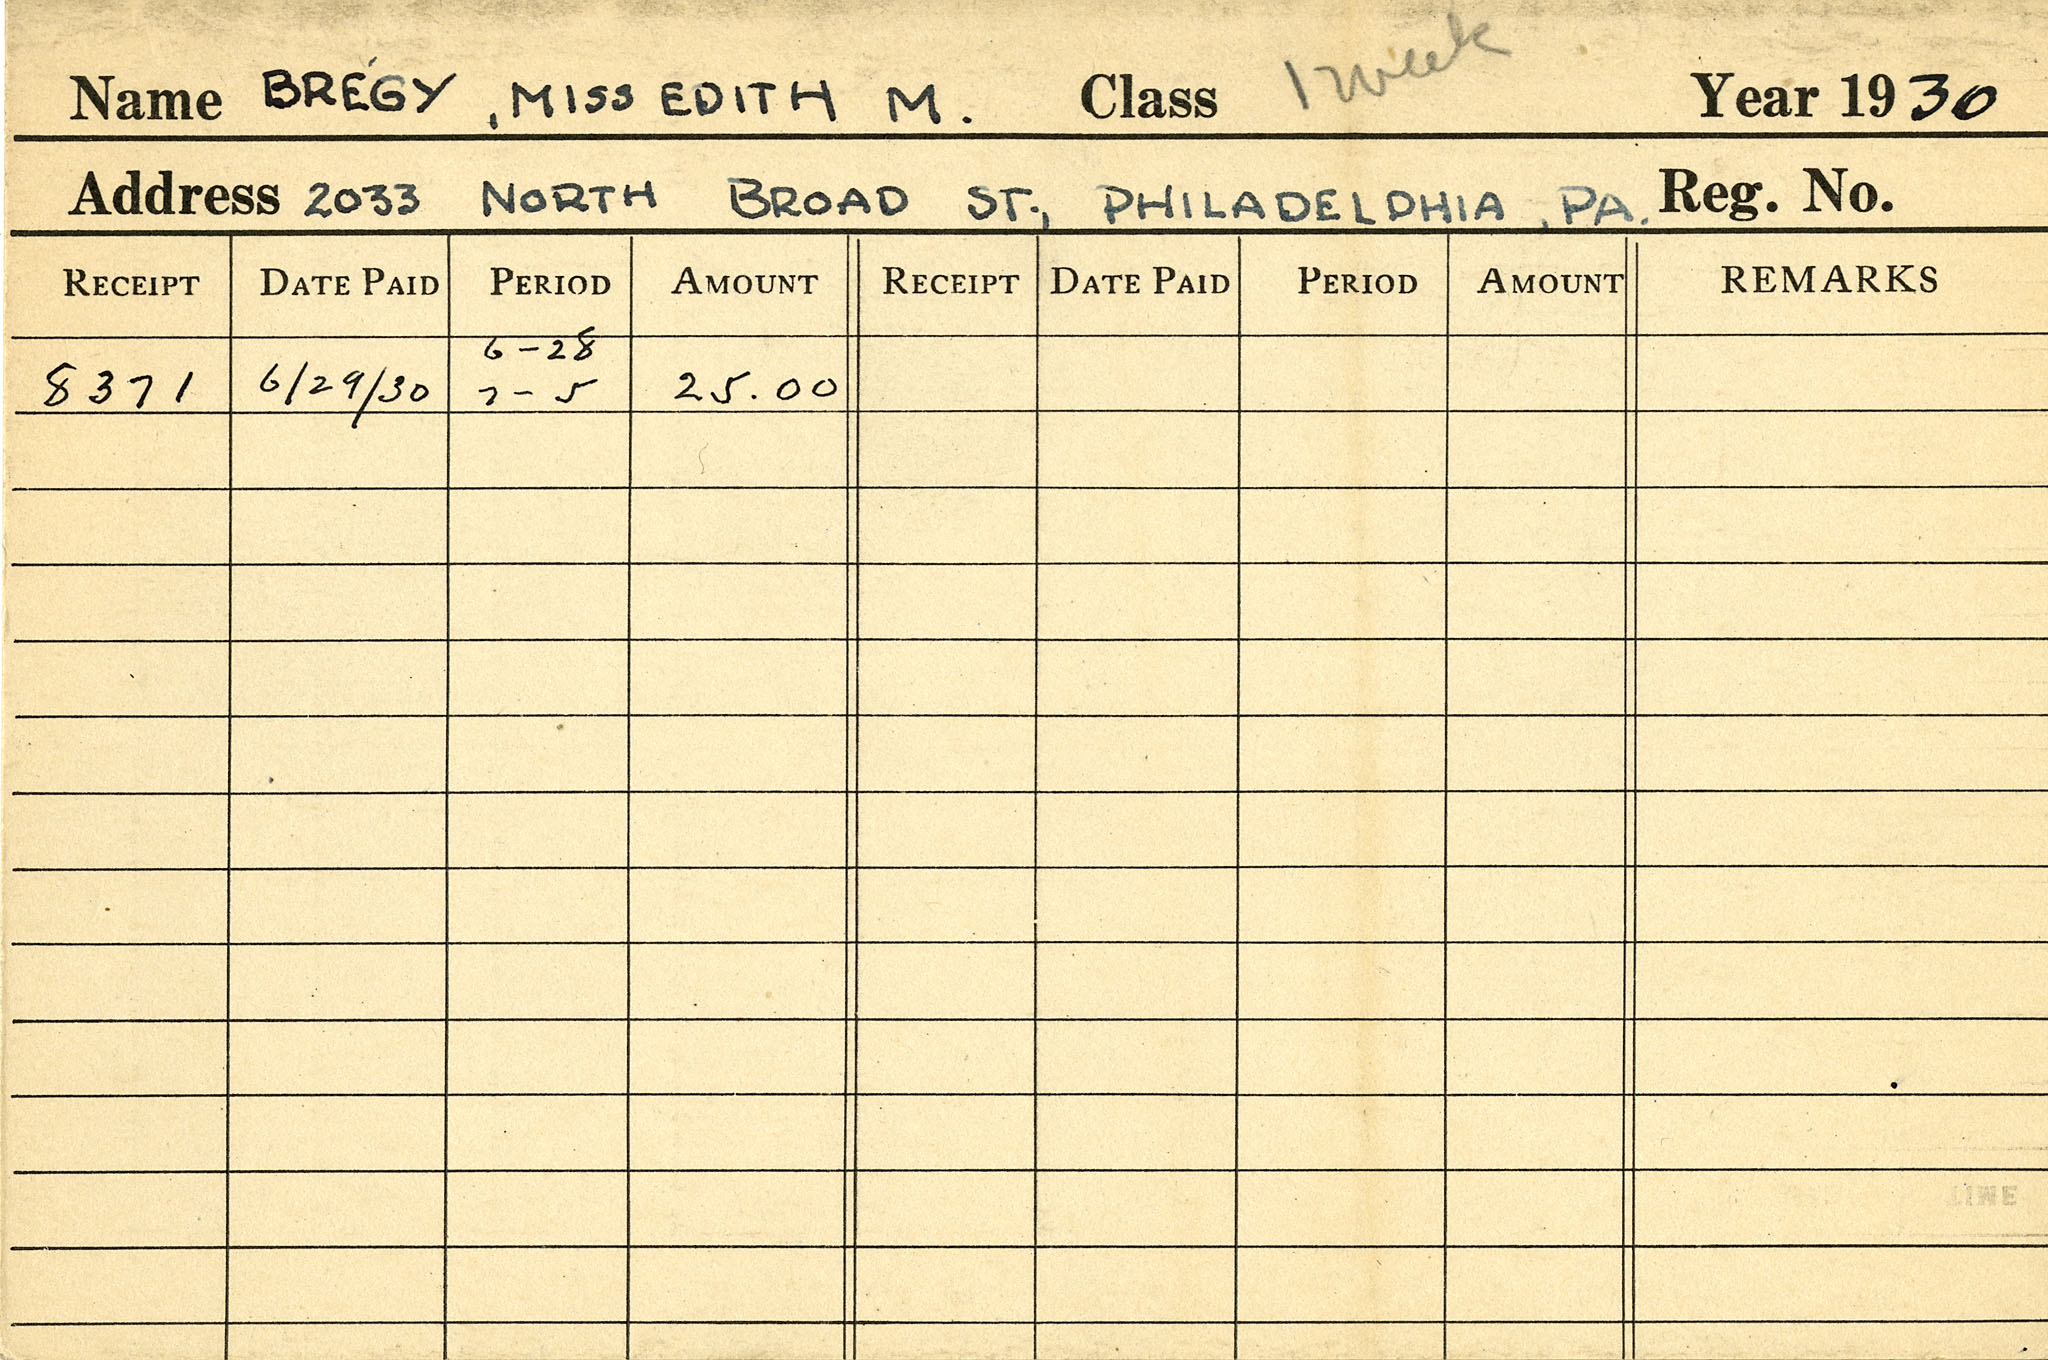 Name BRÉGY, MISS EDITH M. Class 1 week Year 1930
Address 2033 NORTH BROAD ST., PHILADELPHIA, PA. Reg. No.
RECEIPT DATE PAID PERIOD AMOUNT RECEIPT DATE PAID PERIOD AMOUNT REMARKS
6-28
8371 6/29/30 7-5 25.00